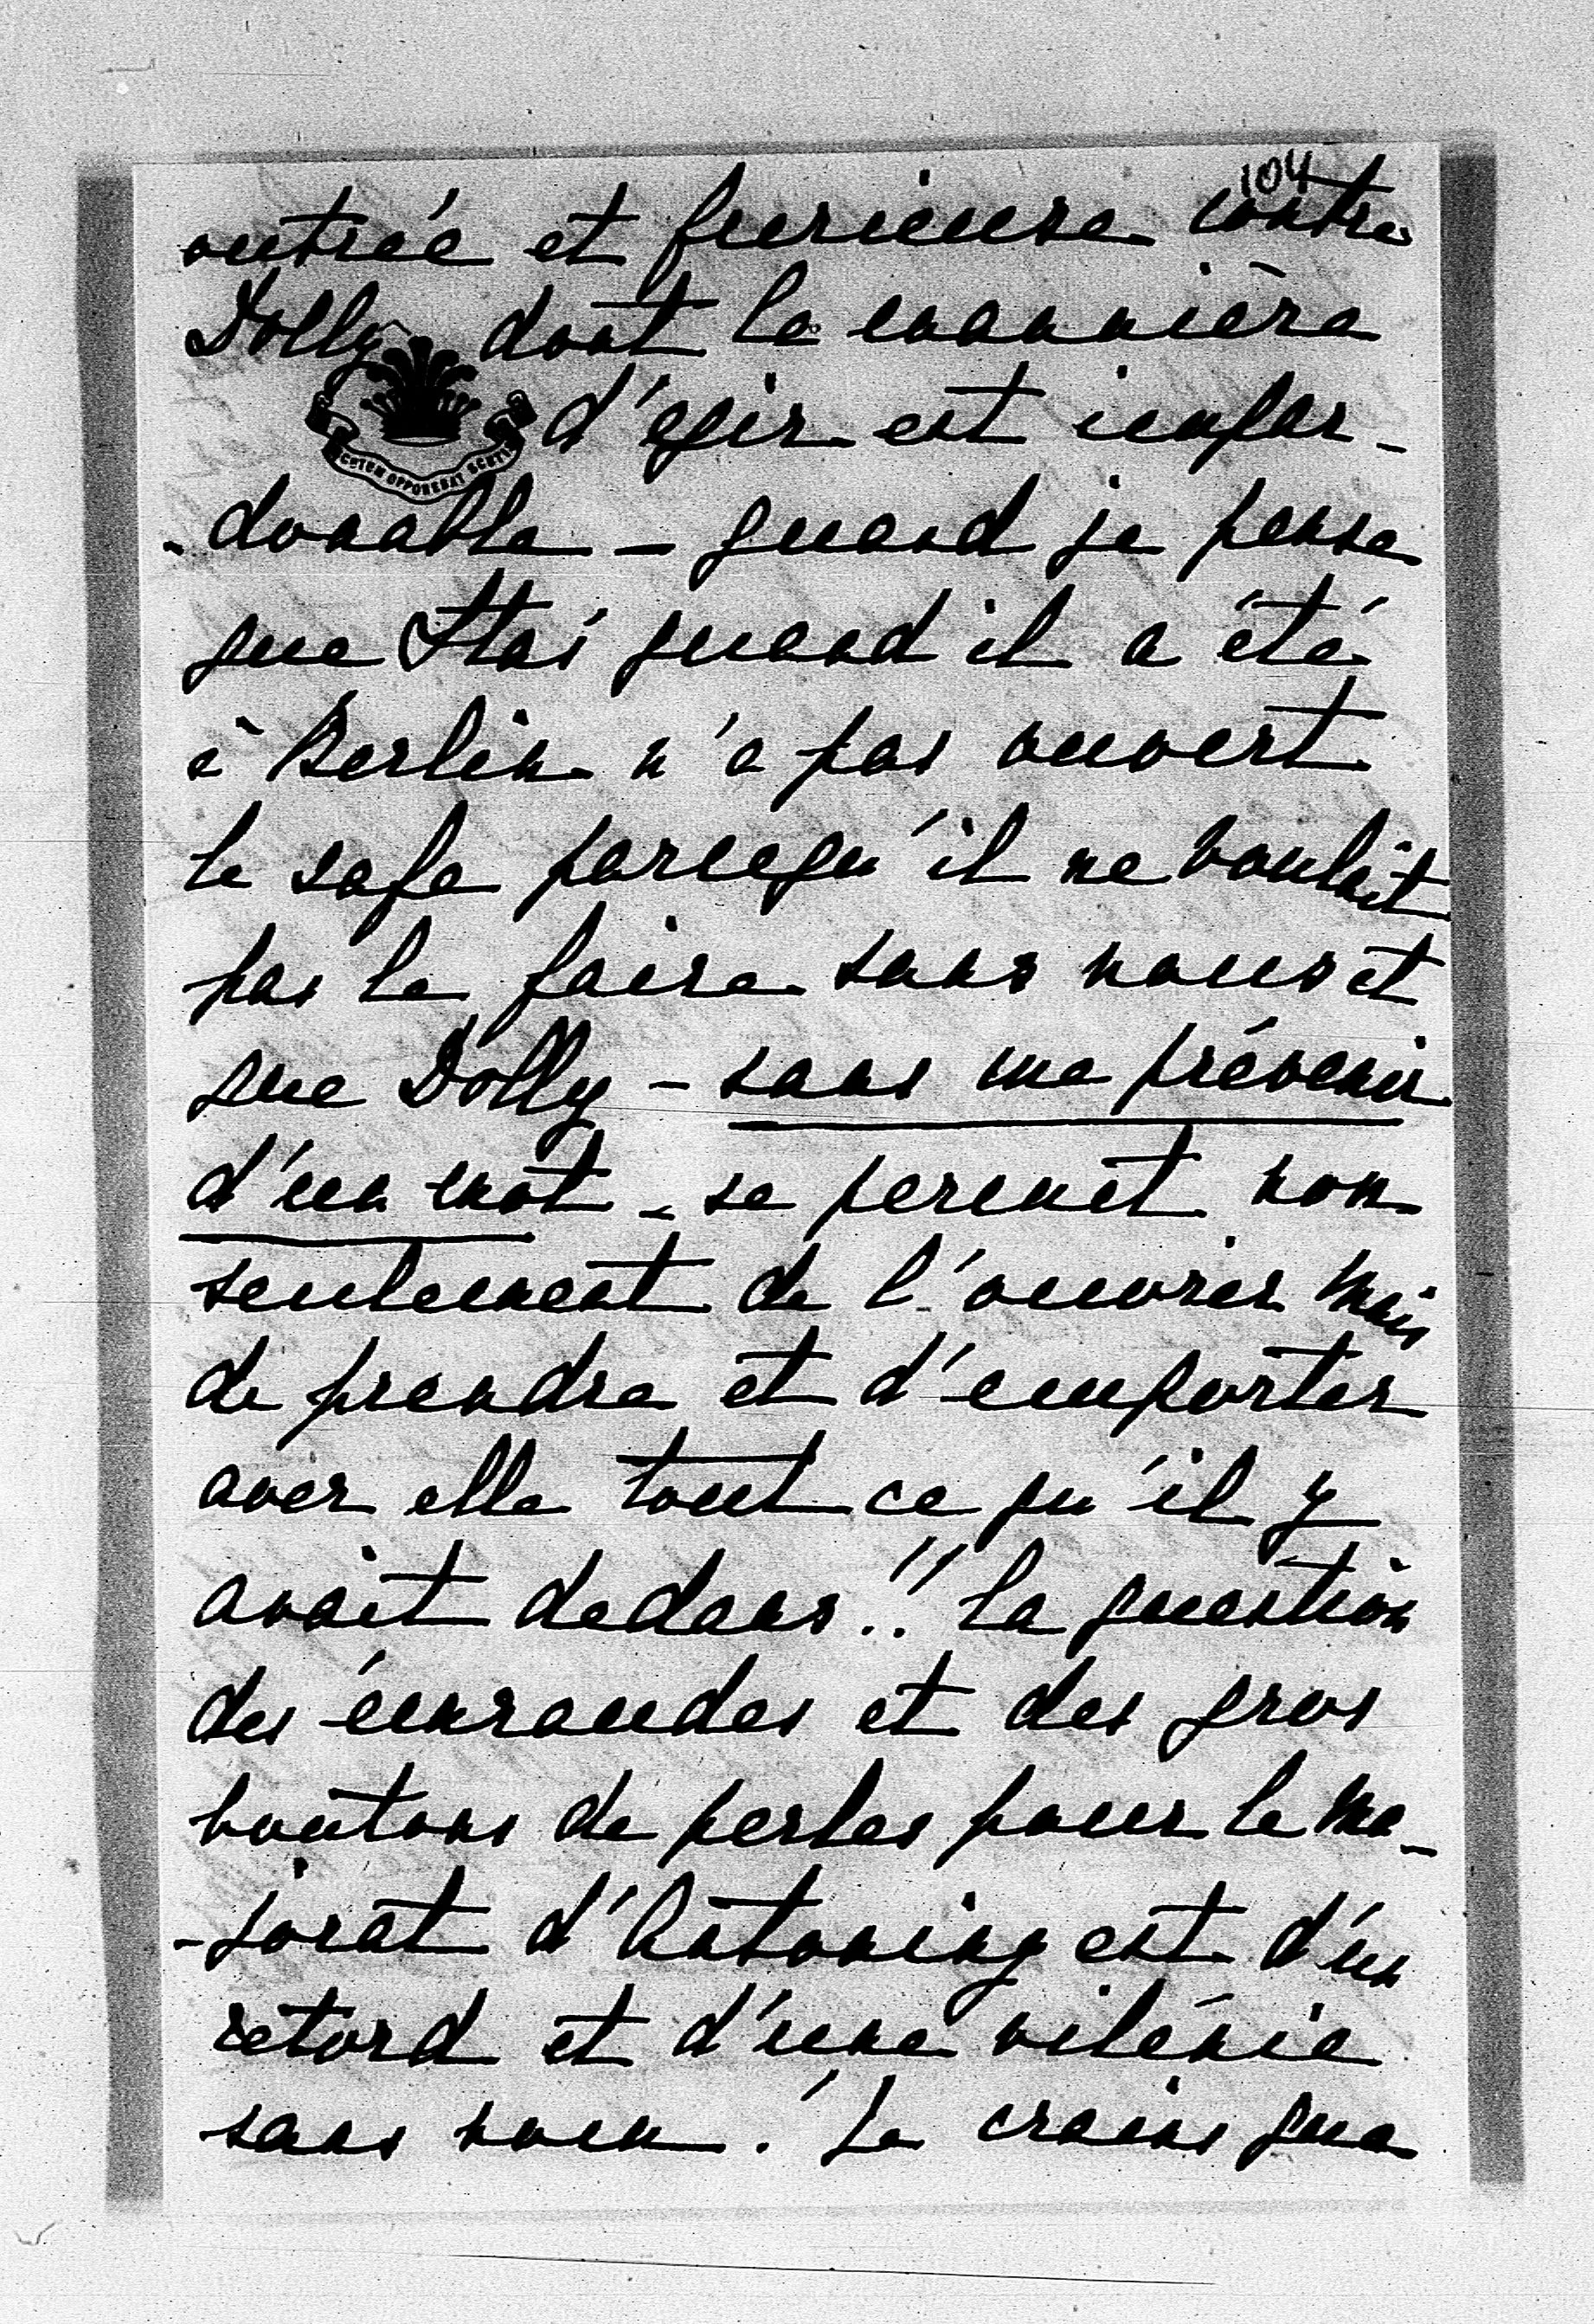 104
outrée et furieuse contre
Dolly dont la mannière
d'agir est impar-
SCUTUM OPPONEBAT SCUTIS
-donable – quand je pense
que Stas quand il a été
à Berlin n'a pas ouvert
le safe parcequ'il ne voulait
pas le faire sans nous et
que Dolly – sans me prévenir
d'un mot – se permet non
seulement de l'ouvrir mais
de prendre et d'emporter
avec elle tout ce qu'il y
avait dedans!! La question
des émeraudes et des gros
boutons de perles pour le ma-
-jorat d'Antoniny est d'un
retord et d'une vilénie
sans nom. Je crains que